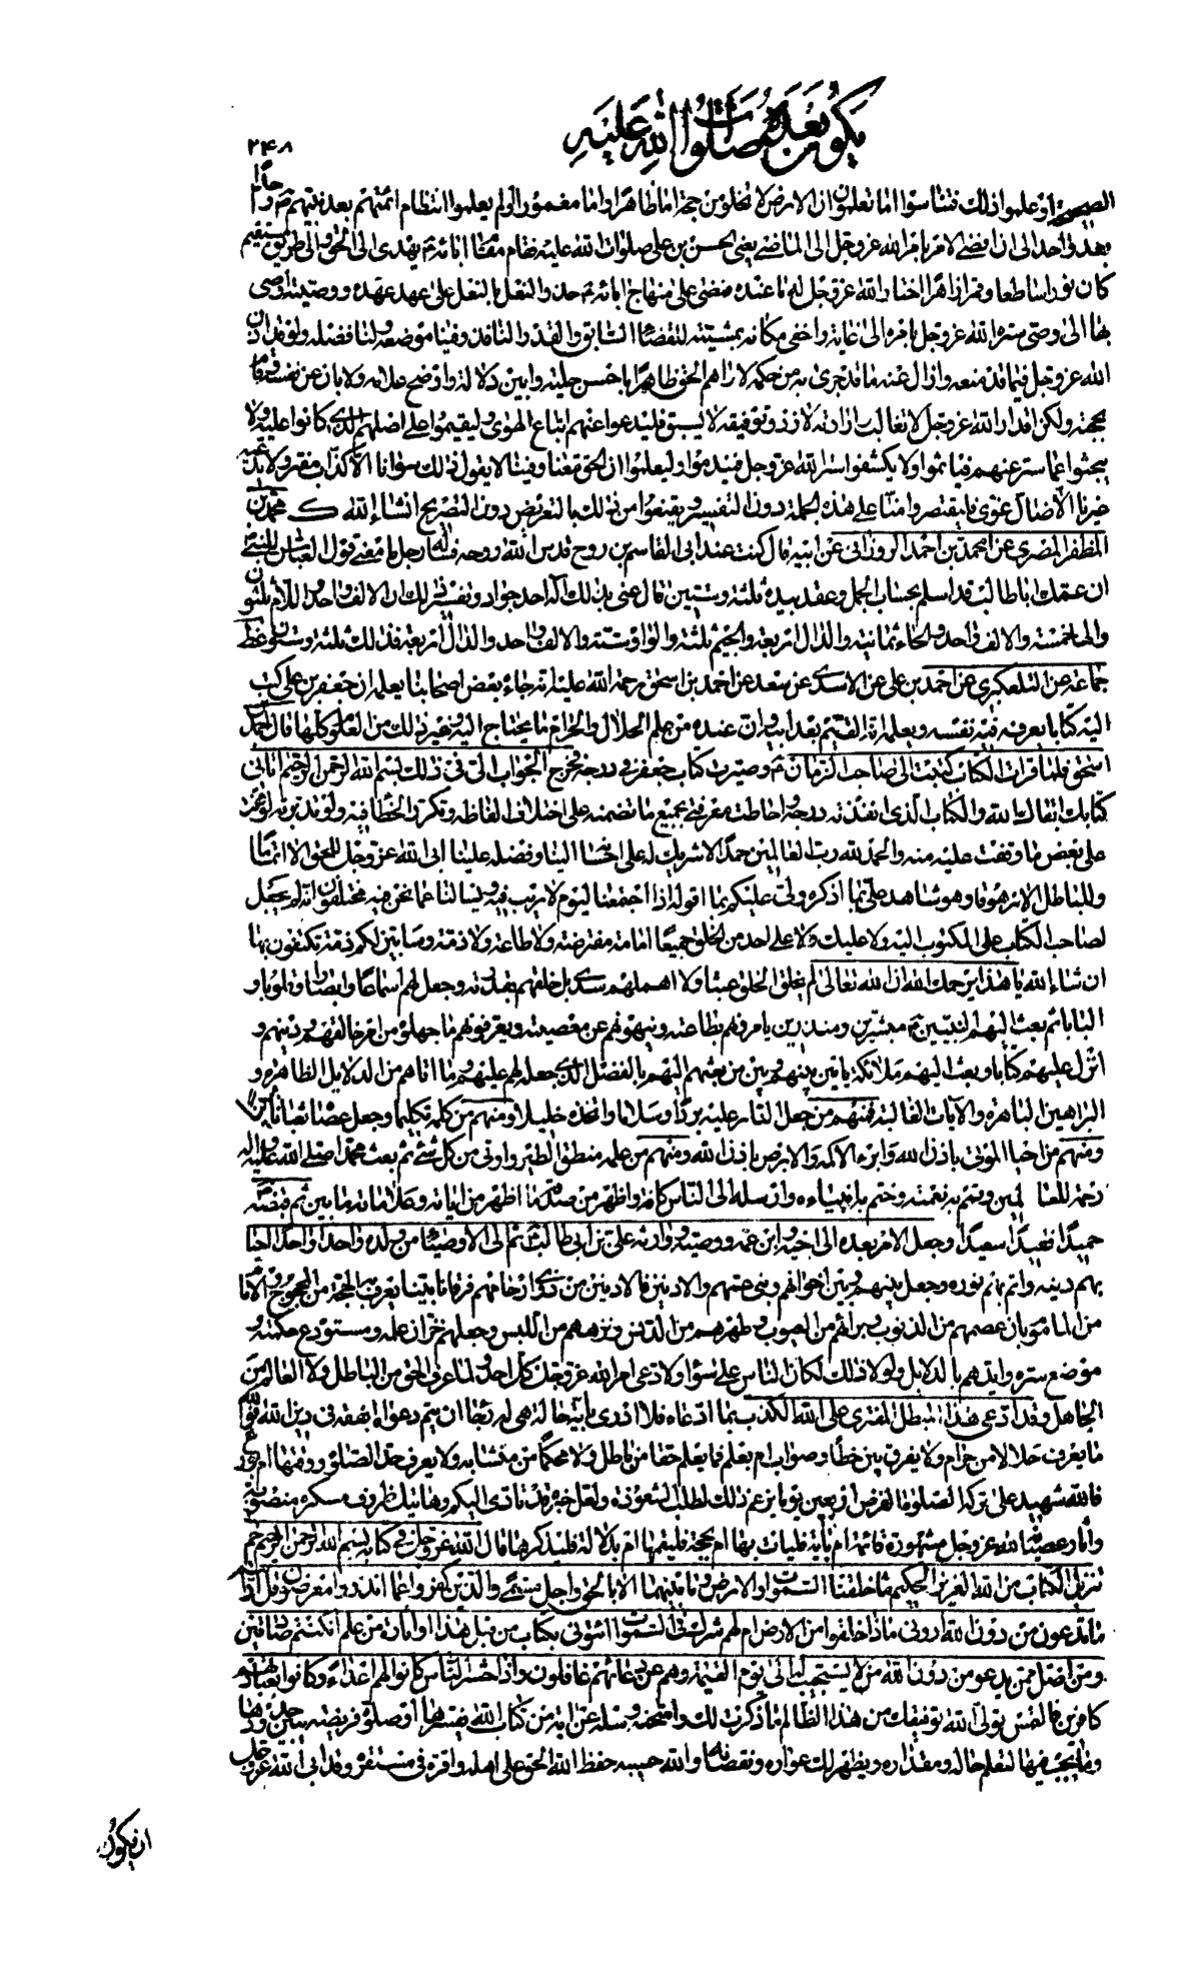 يكون بعده صلوات الله عليه
۲۴۸
الصحيح او علموا ذلك فتناسوا اما تعلمون ان الارض لا تخلو من حجة اما ظاهرا واما مغمورا اولم يعلموا انتظام ائمتهم بعد نبيهم ص واحدا
بعد واحد الى ان افضى الامر بامر الله عز وجل الى الماضي يعني الحسن بن علي صلوات الله عليه فقام مقام ابائه ع يهدي الى الحق والى طريق مستقيم
كان نورا ساطعا وقمرا زاهرا اختار الله عز وجل له ما عنده فمضى على منهاج ابائه ع حذو النعل بالنعل على عهد عهده ووصية اوصى
بها الى وصي ستره الله عز وجل بامره الى غاية واخفى مكانه بمشيته للقضاء السابق والقدر النافذ وفينا موضعه ولنا فضله ولو قد اذن
الله عز وجل فيما قد منعه وازال عنه ما قد جرى به من حكمه لاراهم الحق ظاهرا باحسن حلية وابين دلالة واوضح علامة ولابان عن نفسه وقام
بحجته ولكن اقدار الله عز وجل لا تغالب ارادته لا ترد وتوفيقه لا يسبق فليدعوا عنهم اتباع الهوى وليقيموا على اصلهم الذي كانوا عليه ولا
يبحثوا عما ستر عنهم فياثموا ولا يكشفوا ستر الله عز وجل فيندموا وليعلموا ان الحق معنا وفينا لا يقول ذلك سوانا الا كذاب مفتر ولا يدعيه
غيرنا الا ضال غوي فليقتصروا منا على هذه الجملة دون التفسير ويقنعوا من ذلك بالتعريض دون التصريح انشاء الله ك محمد بن
المظفر المصري عن محمد بن احمد الروزاني عن ابيه قال كنت عند ابي القاسم بن روح قدس الله روحه فساله رجل ما معنى قول العباس للنبي
ان عمك ابا طالب قد اسلم بحساب الجمل وعقد بيده ثلثة وستين قال عنى بذلك اله احد جواد وتفسير ذلك ان الالف واحد واللام ثلثون
والهاء خمسة والالف واحد والحاء ثمانية والدال اربعة والجيم ثلثة والواو ستة والالف واحد والدال اربعة فذلك ثلثة وستون غط
جماعة عن التلعكبري عن احمد بن علي عن الاسدي عن سعد عن احمد بن اسحق رحمة الله عليه انه جاءه بعض اصحابنا يعلمه ان جعفر بن علي كتب
اليه كتابا يعرفه فيه نفسه ويعلمه انه القيم بعد ابيه وان عنده من علم الحلال والحرام ما يحتاج اليه وغير ذلك من العلوم كلها قال احمد بن
اسحق فلما قرات الكتاب كتبت الى صاحب الزمان ع وصيرت كتاب جعفر في درجه فخرج الجواب الي في ذلك بسم الله الرحمن الرحيم اتاني
كتابك ابقاك الله والكتاب الذي انفذته درجه واحاطت معرفتي بجميع ما تضمنه على اختلاف الفاظه وتكرر الخطا فيه ولو تدبرته لوقفت
على بعض ما وقفت عليه منه والحمد لله رب العالمين حمدا لا شريك له على احسانه الينا وفضله علينا ابى الله عز وجل للحق الا اتماما
وللباطل الا زهوقا وهو شاهد علي بما اذكره ولي عليكم بما اقوله اذا اجتمعنا ليوم لا ريب فيه ويسالنا عما نحن فيه مختلفون انه لم يجعل
لصاحب الكتاب على المكتوب اليه ولا عليك ولا على احد من الخلق جميعا امامة مفترضة ولا طاعة ولا ذمة وسابين لكم ذمة تكتفون بها
ان شاء الله يا هذا يرحمك الله ان الله تعالى لم يخلق الخلق عبثا ولا اهملهم سدى بل خلقهم بقدرته وجعل لهم اسماعا وابصارا وقلوبا و
البابا ثم بعث اليهم النبيين ع مبشرين ومنذرين يامرونهم بطاعته وينهونهم عن معصيته ويعرفونهم ما جهلوه من امر خالقهم ودينهم و
انزل عليهم كتابا وبعث اليهم ملائكة ياتين بينهم وبين من بعثهم اليهم بالفضل الذي جعله لهم عليهم وما اتاهم من الدلايل الظاهرة و
البراهين الباهرة والايات الغالبة فمنهم من جعل النار عليه بردا وسلاما واتخذه خليلا ومنهم من كلمه تكليما وجعل عصاه ثعبانا مبينا
ومنهم من احيا الموتى باذن الله وابرء الاكمه والابرص باذن الله ومنهم من علمه منطق الطير واوتي من كل شيء ثم بعث محمدا صلى الله عليه واله
رحمة للعالمين وتمم به نعمته وختم به انبياءه وارسله الى الناس كافة واظهر من صدقه ما اظهر من اياته وعلاماته ما بين ثم قبضه
حميدا فقيدا سعيدا وجعل الامر بعده الى اخيه وابن عمه ووصيه ووارثه علي بن ابي طالب ثم الى الاوصياء من ولده واحدا واحدا احيا
بهم دينه واتم بهم نوره وجعل بينهم وبين اخوانهم وبني عمهم والادنين فالادنين من ذوي ارحامهم فرقانا بينا يعرف به الحجة من المحجوج والامام
من الماموم بان عصمهم من الذنوب وبراهم من العيوب وطهرهم من الدنس ونزههم من اللبس وجعلهم خزان علمه ومستودع حكمته و
موضع سره وايدهم بالدلايل ولولا ذلك لكان الناس على سواء ولادعى امر الله عز وجل كل احد ولما عرف الحق من الباطل ولا العالم من
الجاهل وقد ادعى هذا المبطل المفتري على الله الكذب بما ادعاه فلا ادري باية حالة هي له رجاء ان يتم دعواه ابفقه في دين الله فوالله
ما يعرف حلالا من حرام ولا يفرق بين خطا وصواب ام بعلم فما يعلم حقا من باطل ولا محكما من متشابه ولا يعرف حد الصلوة ووقتها ام بورع
فالله شهيد على تركه الصلوة الفرض اربعين يوما يزعم ذلك لطلب الشعوذة ولعل خبره قد تادى اليكم وهاتيك ظروف مسكره منصوبة
واثار عصيانه لله عز وجل مشهورة قائمة ام باية فليات بها ام بحجة فليقمها ام بدلالة فليذكرها قال الله عز وجل في كتابه بسم الله الرحمن الرحيم حم
تنزيل الكتاب من الله العزيز الحكيم ما خلقنا السموات والارض وما بينهما الا بالحق واجل مسمى والذين كفروا عما انذروا معرضون قل ارايتم
ما تدعون من دون الله اروني ماذا خلقوا من الارض ام لهم شرك في السموات ائتوني بكتاب من قبل هذا او اثارة من علم ان كنتم صادقين
ومن اضل ممن يدعو من دون الله من لا يستجيب له الى يوم القيمة وهم عن دعائهم غافلون واذا حشر الناس كانوا لهم اعداء وكانوا بعبادتهم
كافرين فالتمس تولى الله توفيقك من هذا الظالم ما ذكرت لك وامتحنه وسله عن اية من كتاب الله يفسرها او صلوة فريضة يبين حدودها
وما يجب فيها لتعلم حاله ومقداره ويظهر لك عواره ونقصانه والله حسيبه حفظ الله الحق على اهله واقره في مستقره وقد ابى الله عز وجل
ان يكون